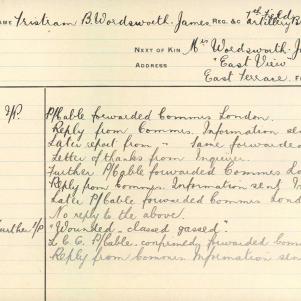 NAME Tristram B. Wordsworth-James REG. &c 7th Field Artillery B
NEXT OF KIN Mrs Wordsworth-J
ADDRESS "East View"
East Terrace. F
P/Cable forwarded Commrs London.
Reply from Commrs. Information sen
Later report from " Same forwarded
Letter of thanks from Inquirer.
Further P/Cable forwarded Commrs Lo
Reply from Commrs. Information sent I
Later P/Cable forwarded Commrs Lond
No reply to the above.
Further "Wounded - classed gassed".
P/Cable. confirmed forwarded Comm
Reply from Commrs Information sen